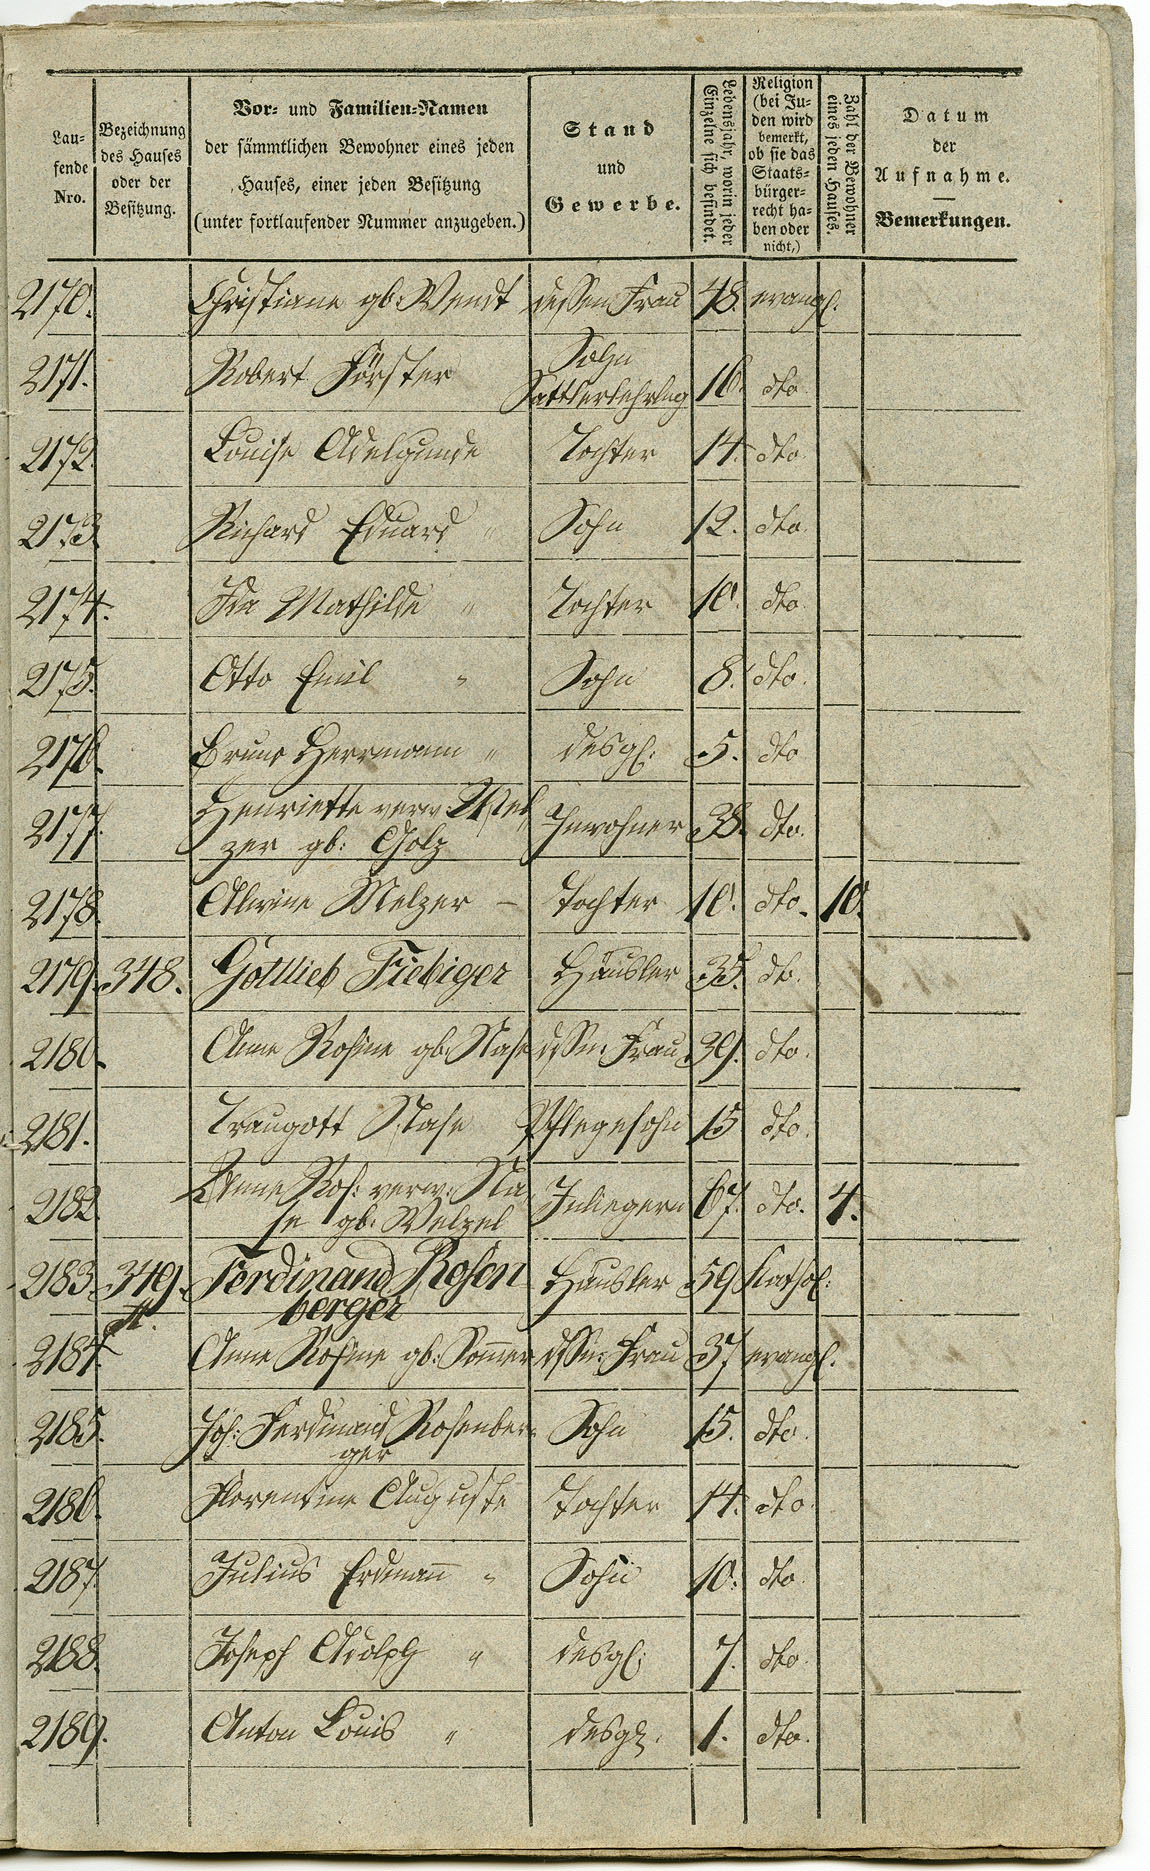 Lau-
fende
Nro.
Bezeichnung
des Hauses
oder der
Besitzung.
Vor- und Familien-Namen
der sämmtlichen Bewohner eines jeden
Hauses, einer jeden Besitzung
(unter fortlaufender Nummer anzugeben.)
Stand
und
Gewerbe.
Lebensjahr, worin jeder
Einzelne sich befindet.
Religion
(bei Ju-
den wird
bemerkt,
ob sie das
Staats-
bürger-
recht ha-
ben oder
nicht,)
Zahl der Bewohner
eines jeden Hauses.
Datum
der
Aufnahme.
Bemerkungen.
2170. Christiane gb: Wendt dessen Frau 48. evangl.
2171. Robert Förster Sohn Sattlerlehrlng 16. dto
2172. Louise Adelgunde Tochter 14. dto.
2173 Richard Eduard " Sohn 12. dto.
2174. Ida Mathilde " Tochter 10. dto.
2175. Otto Emil " Sohn 8. dto.
2176. Bruno Herrmann " desgl: 5. dto
2177. Henriette verw: Mel Inwohner 38. dto.
zer gb:
2178. Alwine Melzer – Tochter 10. dto. 10.
2179. 348. Gottlieb Fiebiger Häusler 35. dto.
2180. Anne Rosine gb: Nase dssen Frau 39. dto.
2181. Traugott Nase Pflegesohn 15 dto.
2182. Anne Ros: verw: Na Inliegern 67. dto. 4.
se gb: Welzel
2183. 349. Ferdinand Rosen Häusler 59 Kathol:
berger
2184. Anne Rosine gb: Sommer dssen Frau 37 evangl.
2185. Joh: Ferdinand Rosenber= Sohn 15. dto.
ger
2186. Florentine Auguste Tochter 14. dto.
2187. Julius Erdmann " Sohn 10. dto.
2188. Joseph Adolph " desgl: 7. dto.
2189. Anton Louis " desgl. 1. dto.